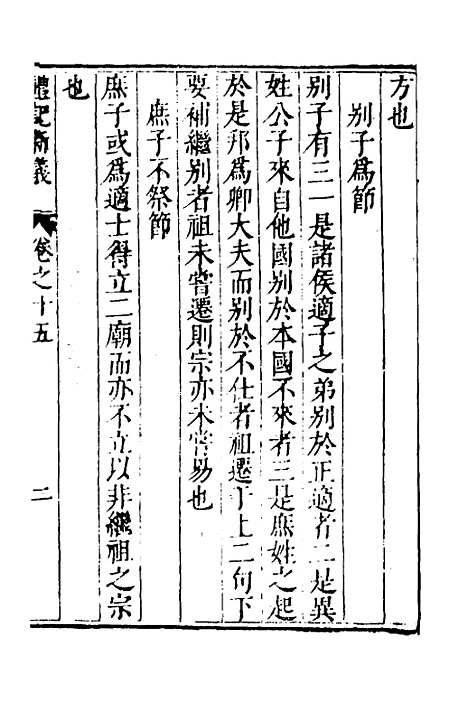 方也
別子爲節
別子有三一是諸侯適子之弟別於正適者二是異
姓公子來自他國別於本國不來者三是庶姓之起
於是邦爲卿大夫而別於不仕者祖遷于上二句下
要補繼別者祖未嘗遷則宗亦未嘗易也
庶子不祭節
庶子或爲適士得立二廟而亦不立以非繼祖之宗
也
禮記
義
卷之十五
二